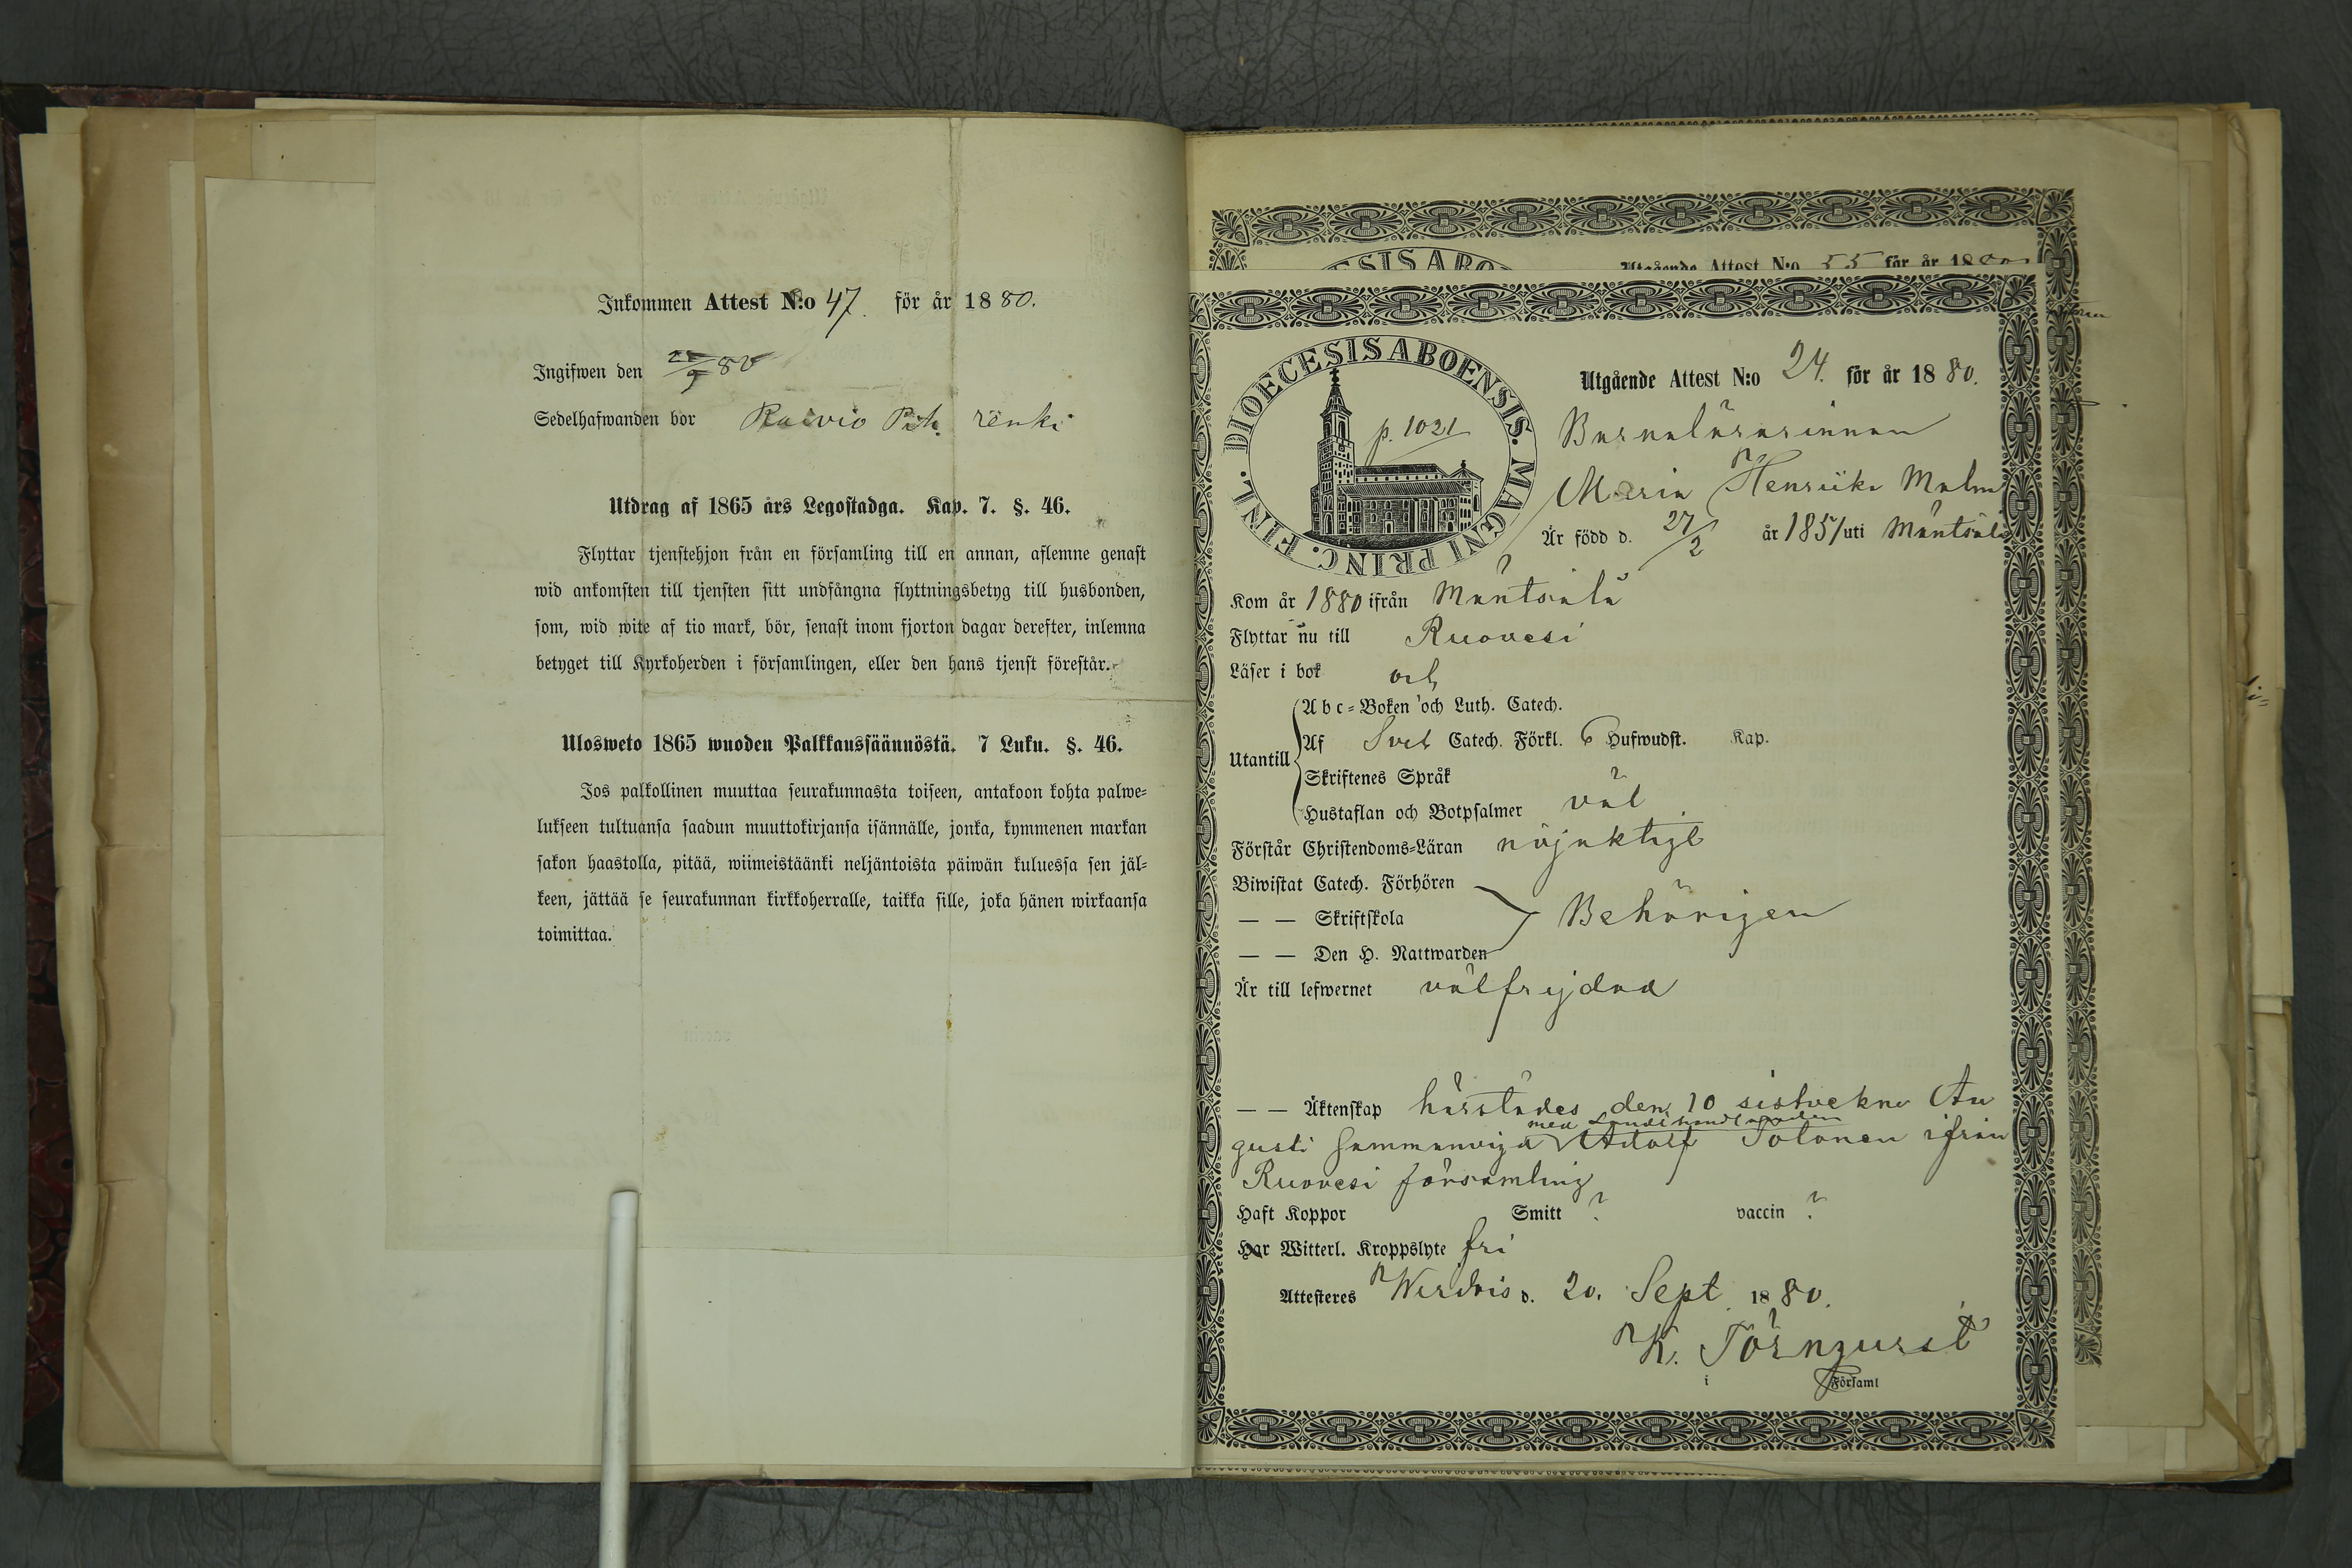 Inkommen Attest N:o 47. för år 1880.
Ingifwen den 80
Sedelhafwanden bor Raivio renki
Utdrag af 1865 års Legostadga. Kap. 7. §. 46.
Flyttar tjenstehjon från en församling till en annan, aflemne genast
wid ankomsten till tjensten sitt undfångna flyttningsbetyg till husbonden,
som, wid wite af tio mark, bör, senast inom fjorton dagar derefter, inlemna
betyget till Kyrkoherden i församlingen, eller den hans tjenst förestår.
Ulosweto 1865 wuoden Palkkaussäännöstä. 7 Luku. §. 46.
Jos palkollinen muuttaa seurakunnasta toiseen, antakoon kohta palwe-
lukseen tultuansa saadun muuttokirjansa isännälle, jonka, kymmenen markan
sakon haastolla, pitää, wiimeistäänki neljäntoista päiwän kuluessa sen jäl-
keen, jättää se seurakunnan kirkkoherralle, taikka sille, joka hänen wirkaansa
toimittaa.
Utgående Attest N:o 55 för år 18
DIOECESIS ABOENSIS. MAGNI PRINC. FINL.
p. 1021
Utgående Attest N:o 24. för år 1880.
Barnalärarinnan
Maria Henrika Malm
Är född d. 27/2 år 1851 uti Mäntsälä
Kom år 1880 ifrån Mäntsälä
Flyttar nu till Ruovesi
Läser i bok och
Utantill
Abc-Boken och Luth. Catech.
Af Sveb Catech. Förkl. 6 Hufwudst. Kap.
Skriftenes Språk
Hustaflan och Botpsalmer väl
Förstår Christendoms-Läran nöjaktigt
Biwistat Catech. Förhören
— — Skriftskola Behörigen
— — Den H. Nattwarden
Är till lefwernet välfrejdad
— — Äktenskap härstädes den 10 sistvekne Au
gusti sammanvigd med Landthandlanden Adolf Tolonen ifrån
Ruovesi församling
Haft Koppor Smitt ? vaccin ?
Har Witterl. Kroppslyte fri
Attesteres Werdois d. 20. Sept 1880.
K. Törnqvist
i Församl